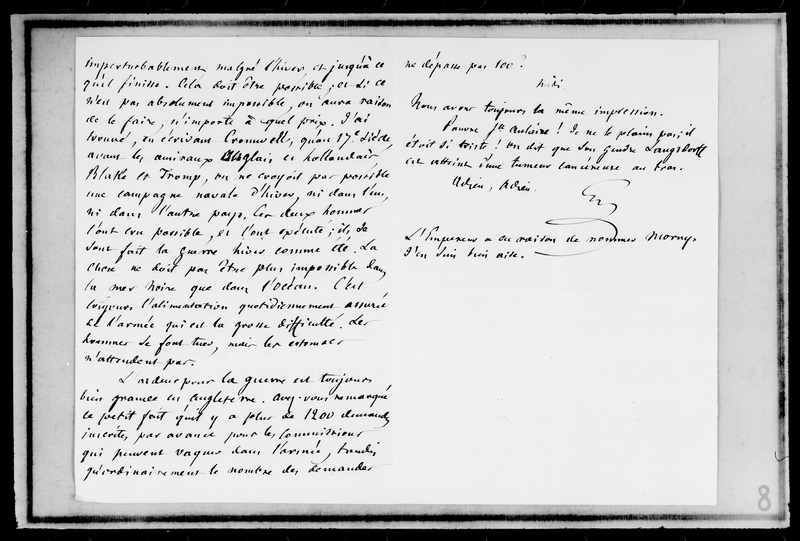 imperturbablement malgré l'hiver et jusqu'à ce
qu'il finisse. Cela doit être possible ; et si ce
n'est pas absolument impossible, on aura raison
de le faire, n'importe à quel prix. J'ai
trouvé, en écrivant Cromwell, qu'au 17e siècle,
avant les amiraux Anglais et hollandais
Blake et Tromp, on ne croyoit pas possible
une campagne navale d'hiver, ni dans l'un,
ni dans l'autre pays. Ces deux hommes
l'ont cru possible, et l'ont exécuté ; ils se
sont fait la guerre hiver comme été. La
chose ne doit pas être plus impossible dans
la mer noire que dans l'océan. C'est
toujours l'alimentation quotidiennement assurée
de l'armée qui est la grosse difficulté. Les
hommes se font tuer, mais les estomacs
n'attendent pas.
L'ardeur pour la guerre est toujours
bien grande en Angleterre. Avez-vous remarqué
ce petit fait qu'il y a plus de 1200 demandes
inscrites, par avance pour les commissions
qui peuvent vaquer dans l'armée, tandis
qu'ordinairement le nombre des demandes
ne dépasse pas 100 ?
Midi
Nous avons toujours la même impression.
Pauvre Ste Aulaire ! Je ne le plains pas ; il
étoit si triste ! On dit que son gendre Langsdorff
est atteint d'une tumeur cancéreuse au bras.
Adieu, Adieu.
G
L'Empereur a eu raison de nommer Morny.
J'en suis bien aise.
8